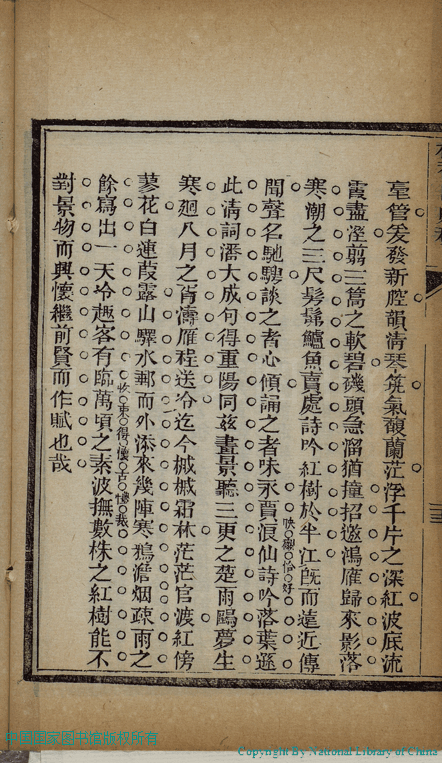 毫管爰發新腔韻清琴筑氣馥蘭茳浮千片之深紅波底流
霞盡溼剪三篙之軟碧磯頭急溜猶撞招邀鴻雁歸來影落
寒潮之三尺髣髴鱸魚賣處詩吟紅樹於半江旣而遠近傳
聞聲名馳騁談之者心傾誦之者味永賈浪仙詩吟落葉遜
映襯恰好
此清詞潘大成句得重陽同茲晝景聽三更之楚雨鷗夢生
寒迴八月之胥濤雁程送冷迄今槭槭霜林茫茫官渡紅傍
蓼花白連葭露山驛水郵而外添來幾陣寒鴉澹烟疎雨之
餘寫出一天冷趣客有臨萬頃之素波撫數株之紅樹能不
收束得懷古懷哉
對景物而興懷繼前賢而作賦也哉
Copyright By National Library of China